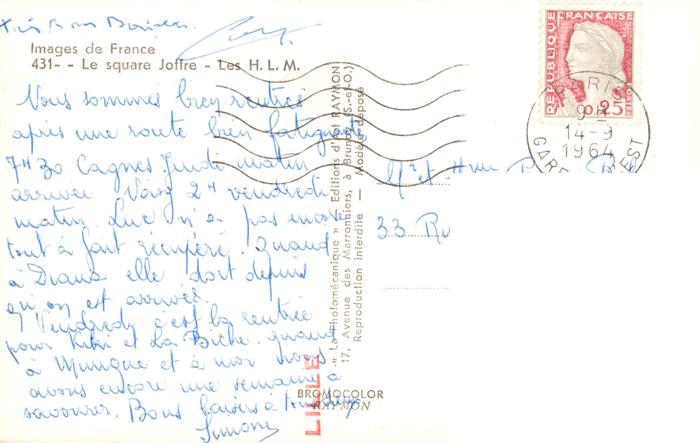 Très Bons Baisers
Images de France
431- - Le square Joffre - Les H. L. M.
Nous sommes bien rentrés
après une route bien fatigante
7H30 Cagnes Jeudi matin
arrivée 2H vendredi
matin. Luc n'a pas encore
tout à fait récupéré. Quand
à Diana elle dort depuis
qu'on est arrivés.
Vendredi c'est la rentrée
pour Kiki et La Biche. quand
à et à moi nous
avons encore une semaine à
savourer. Bons baisers à tous deux
Simone
« La Photomécanique » - Editions d'Art RAYMON
17, Avenue des Marronniers, à Brunoy (S.-et-O.)
Reproduction interdite - Modèle déposé
BROMOCOLOR
RAYMON
REPUBLIQUE FRANÇAISE
POSTES
0,25
PARIS
9 H
14-9
1964
GARE EST
Mr et Mme
33 Ru